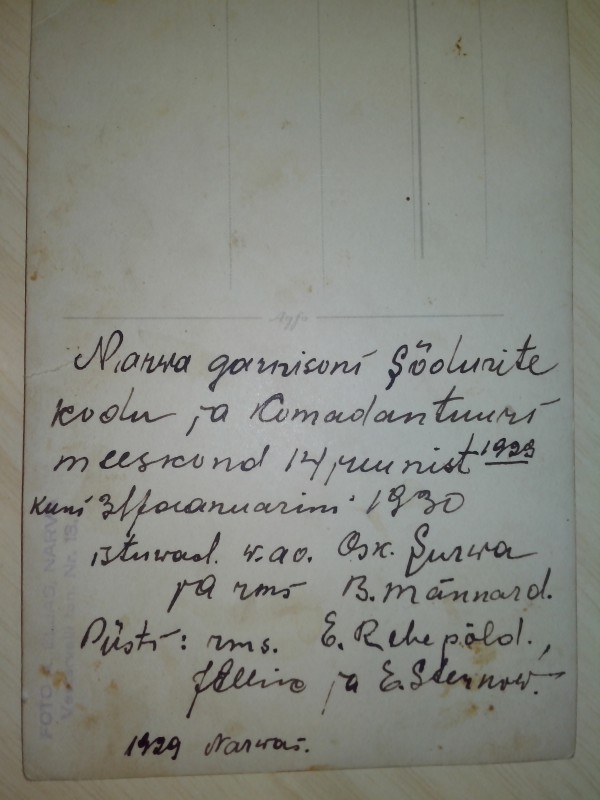 Agfa
Narwa garnisoni Sõdurite
kodu ja Komadantuuri
meeskond 14 juunist 1929
kuni 31 jaanuarini 1930
istuwad. w.ao. Osk. Surwa
ja rms B. Männard.
Püsti: rms. E. Rebepõld.,
ja E. Sternow.
1929 Narwas.
FOTO ELJAS, NARV
Nr. 13.